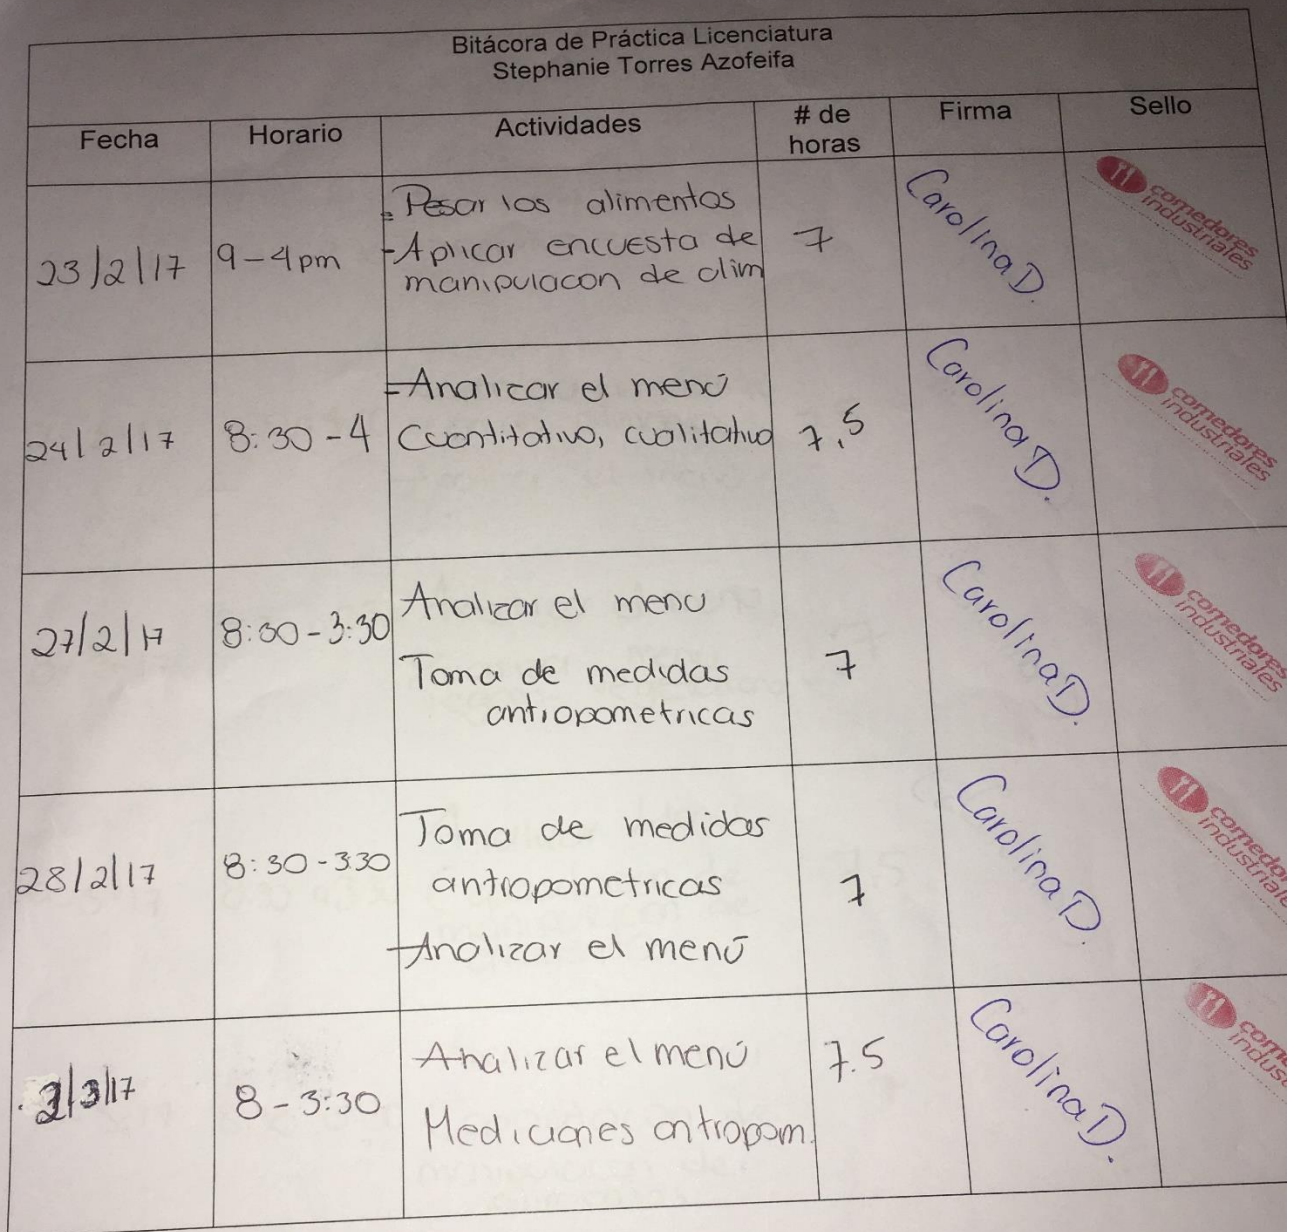 Bitácora de Práctica Licenciatura
Stephanie Torres Azofeifa
Fecha Horario Actividades # de horas Firma Sello
23/2/17 9-4pm
- Pesar los alimentos
- Aplicar encuesta de
manipulacon de alim
7 Carolina D. comedores
industriales
24/2/17 8:30-4
- Analizar el menú
Cuantitativo, cualitativo
7,5 Carolina D. comedores
industriales
27/2/17 8:00-3:30
Analizar el menu
Toma de medidas
antropometricas
7 Carolina D. comedores
industriales
28/2/17 8:30-330
Toma de medidas
antropometricas
- Analizar el menú
7 Carolina D. comedor
industriale
/3/17 8-3:30
Analizar el menú
Mediciones antropom.
7.5 Carolina D. com
indus